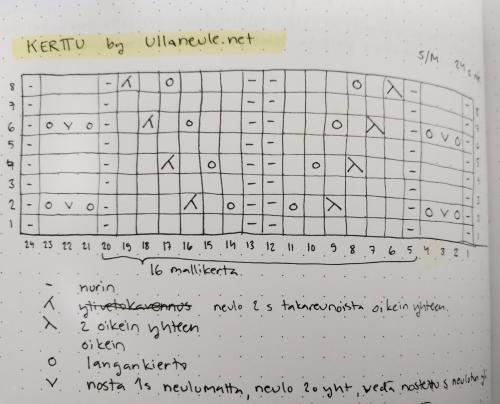 KERTTU by Ullaneule.net
S/M 24 s
8 - - ⅄ O - - O λ - - 8
7 - - - - - -
6 - O V O - ⅄ O - - O λ - O V O -
5 - - - - - -
4 - - ⅄ O - - O λ - -
3 - - - - - -
2 - O V O - ⅄ O - - O λ - O V O -
1 - - - - - -
24 23 22 21 20 19 18 17 16 15 14 13 12 11 10 9 8 7 6 5 4 3 2 1
16 mallikerta
- nurin
⅄ ylivetokavennus neulo 2 s takareunoista oikein yhteen.
λ 2 oikein yhteen
oikein
O langankierto
V nosta 1s neulomatta, neulo 2o yht, vedä nostettu s